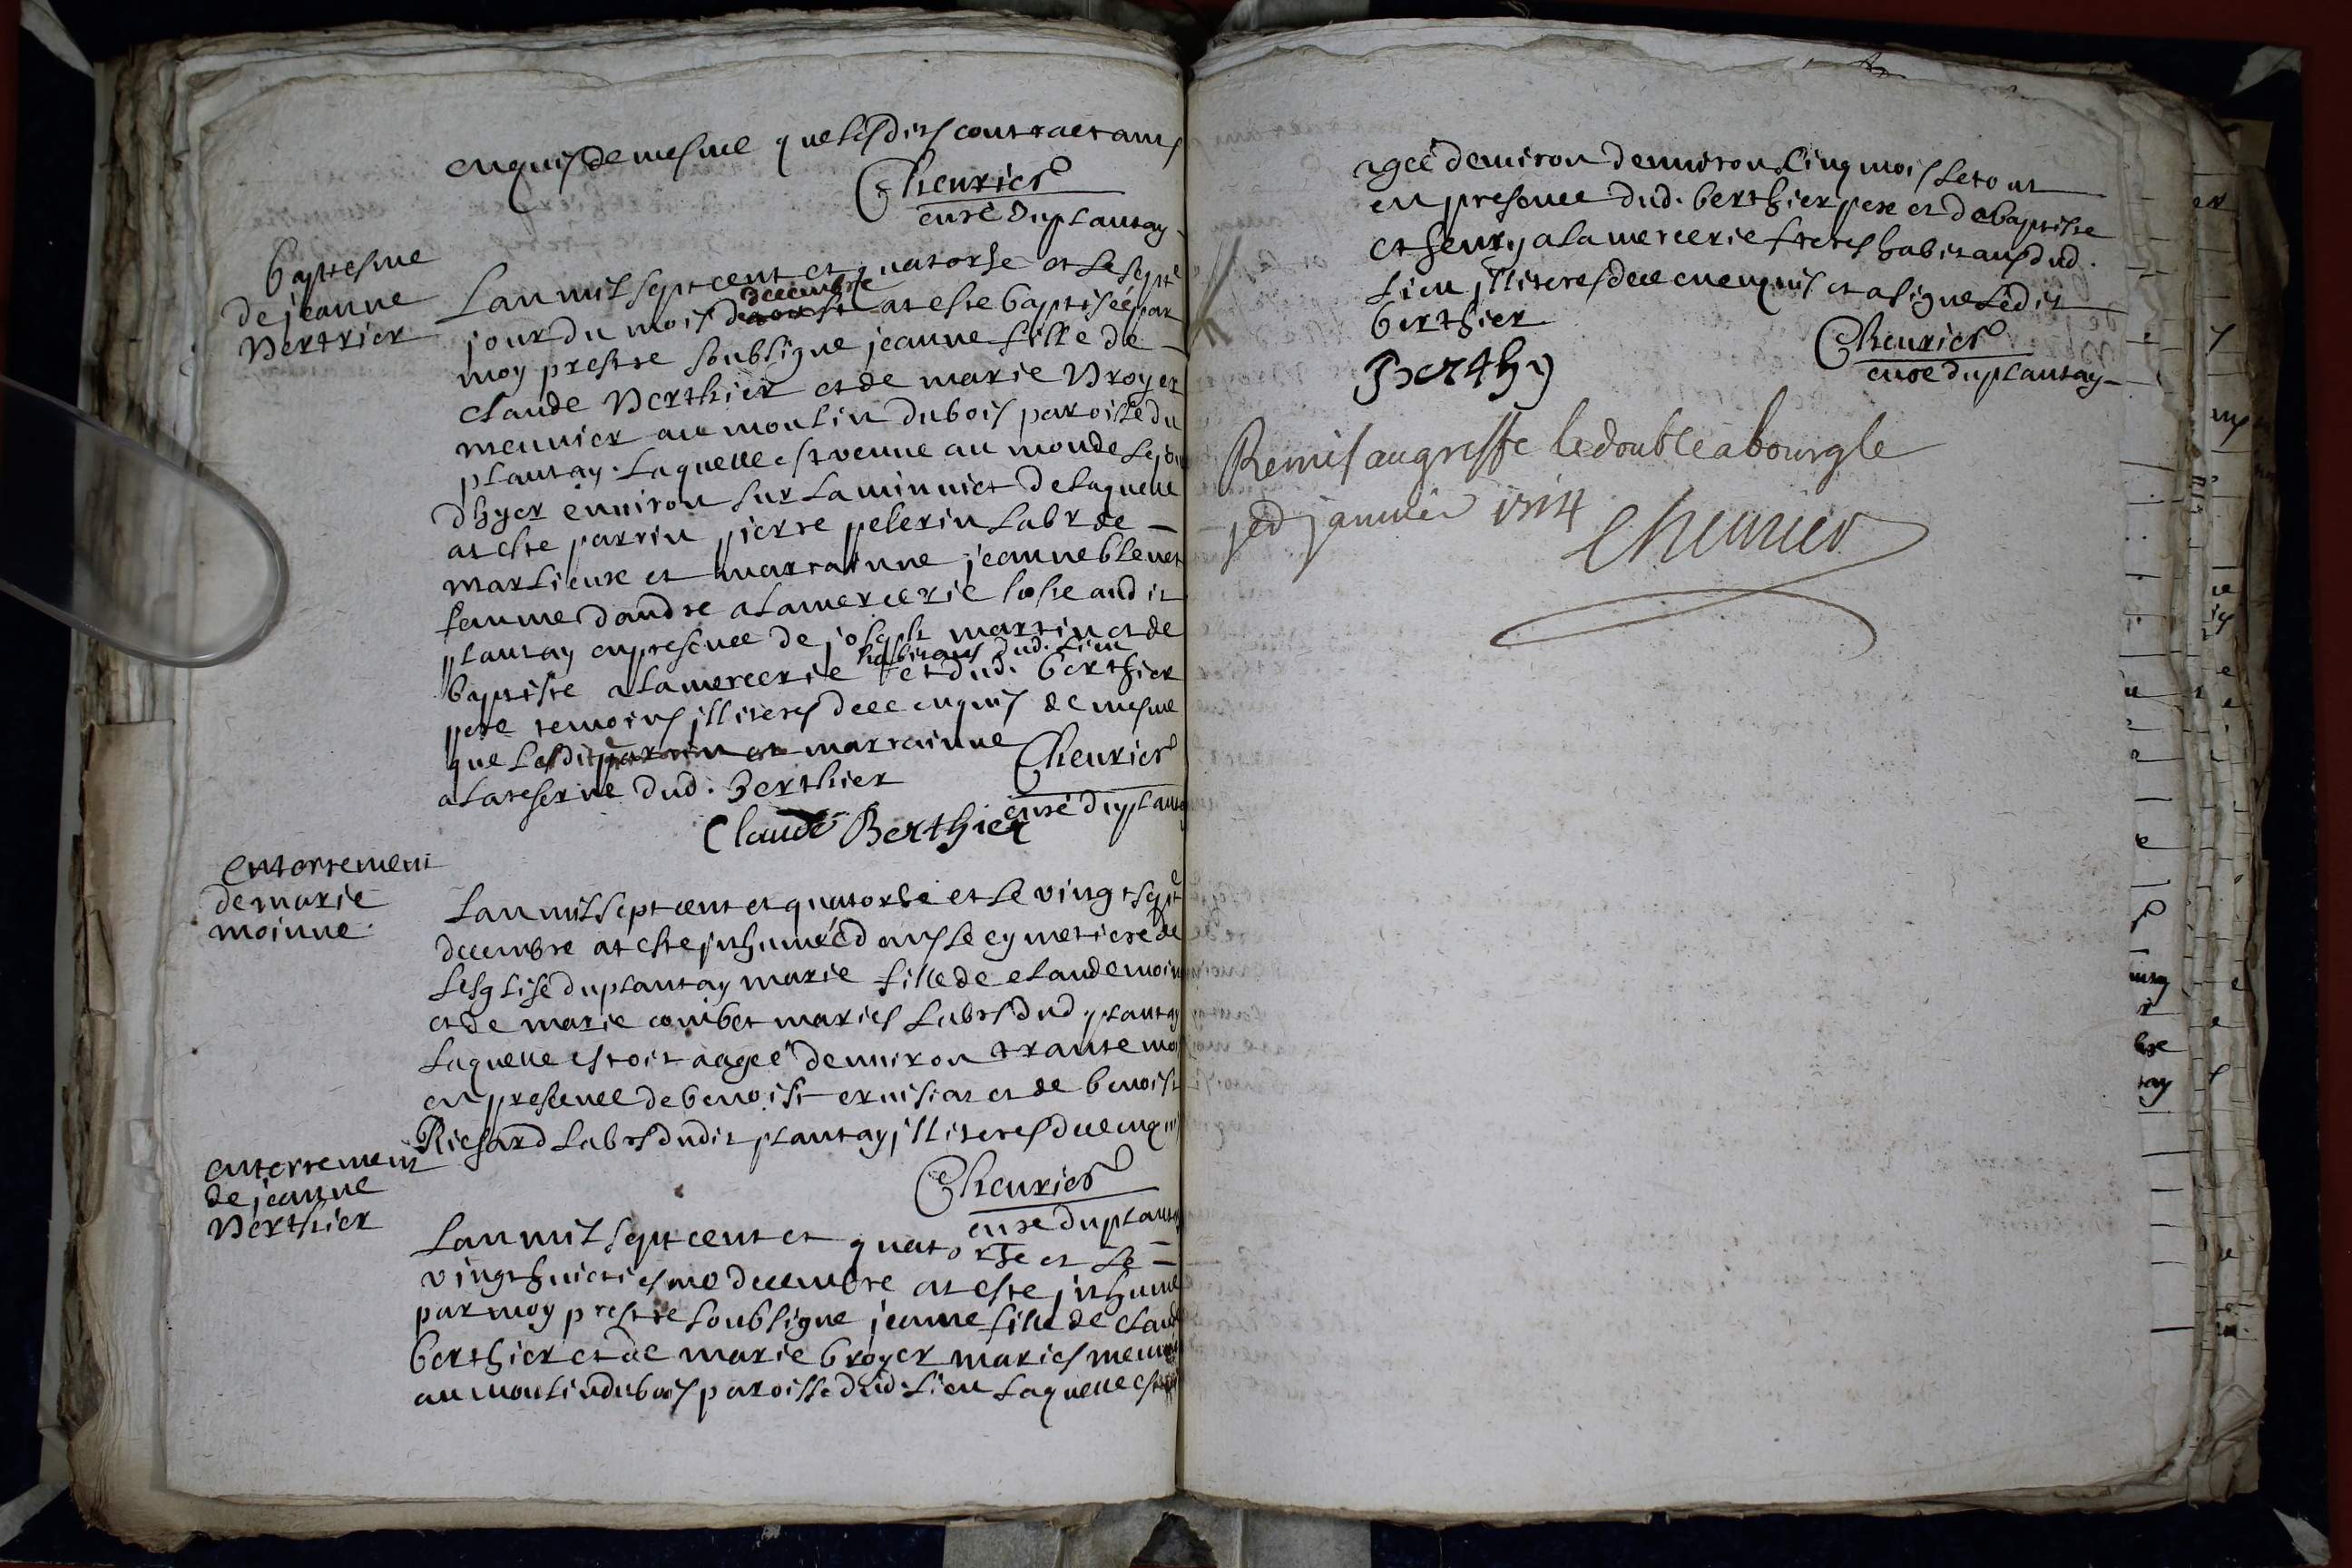 enquis de mesme que lesdits contractans
Cheurier
curé du plantay
Baptesme
de jeanne
Bertrier
Lan mil sept cent et quatorse et le sept
decembre
jour du mois de aoust at este baptisée par
moy prestre soubsigne jeanne fille de
claude Berthier et de marie Broyer
meunier au moulin du bois paroisse du
plantay. laquelle est venue au monde le jour
dhyer enuiron sur la minuict de laquelle
at este parrin pierre pelerin labr de
marlieux et marrainne jeanne bleuet
femme dandre alamercerie hoste audit
plantay en presence de joseph martin et de
habitans dud. lieu
baptiste alamercerie et dud. berthier
pere temoins illiteres de ce enquis de mesme
que lesdit parrin et marrainne
a lareserue dud. Berthier
Cheurier
curé du plantay
Claude Berthier
enterrement
de marie
moinne
Lan mil sept cent et quatorse et le vingt sept
decembre at este inhumée dans le cymetiere de
lesglise du plantay marie fille de claude moinne
et de marie combet maries labrs dud. plantay
laquelle estoit aagée denuiron trante mois
en presence de benoist et de benoist
Richard labrs dudit plantay illiteres de ce enquis
Cheurier
curé du plantay
enterrement
de jeanne
Berthier
Lan mil sept cent et quatorse et le
vingt huictiesme decembre at este inhumé
par moy prestre soubsigne jeanne fille de claude
berthier et de marie broyer maries meunier
au moulin du bois paroisse dud. lieu laquelle estoit
agéé denuiron denuiron cinq mois le tout
en presence dud. berthier pere et de baptiste
et henry alamercerie freres habitans dud.
lieu illiteres de ce enenquis et a signe ledit
berthier
Cheurier
curé du plantay
Berthy
Remis au greffe le double a bourg le
janvier 1714
Cheurier